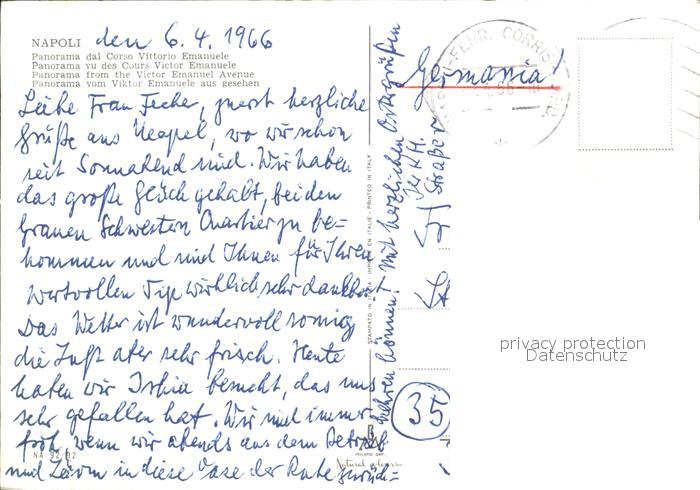 NAPOLI den 6.4.1966
Panorama dal Corso Vittorio Emanuele
Panorama vu des Cours Victor Emanuele
Panorama from the Victor Emanuel Avenue
Panorama vom Viktor Emanuele aus gesehen
Liebe Frau Fecher, zuerst herzliche
Grüße aus Neapel, wo wir schon
seit Sonnabend sind. Wir haben
das große Glück gehabt, bei den
Grauen Schwestern Quartier zu be=
kommen und sind Ihnen für Ihren
wertvollen Tip wirklich sehr dankbar
Das Wetter ist wundervoll sonnig
die Luft aber sehr frisch. Heute
haben wir Ischia besucht, das uns
sehr gefallen hat. Wir sind immer
froh, wenn wir abends aus dem Betrieb
und Lärm in diese Oase der Ruhe zurück=
kehren können. Mit herzlichen Ostergrüßen
Ihre H.H.
STAMPATO IN ITALIA - IMPRIMÉ EN ITALIE - PRINTED IN ITALY
Germania!
FERR. CORRISP
Straße
St
35
NA 92/82
MILANO
Natural colour
privacy protection
Datenschutz